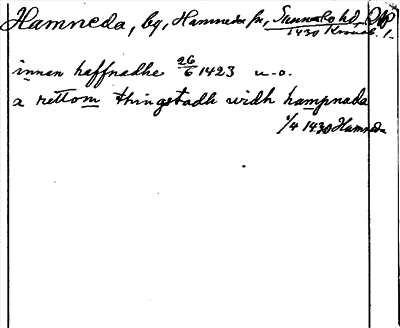 Hamneda, by, Hamneda sn, Sunnerbo hd,
1430 Kronob. l.
innan haffnadhe 26/6 1423 u.o.
a rettom thingstadh widh hampnada
1/4 1430 Hamneda